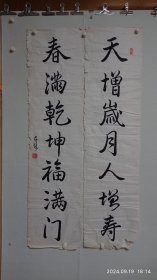 天增歲月人增寿
春满乾坤福满门
2024.09.19 18:14